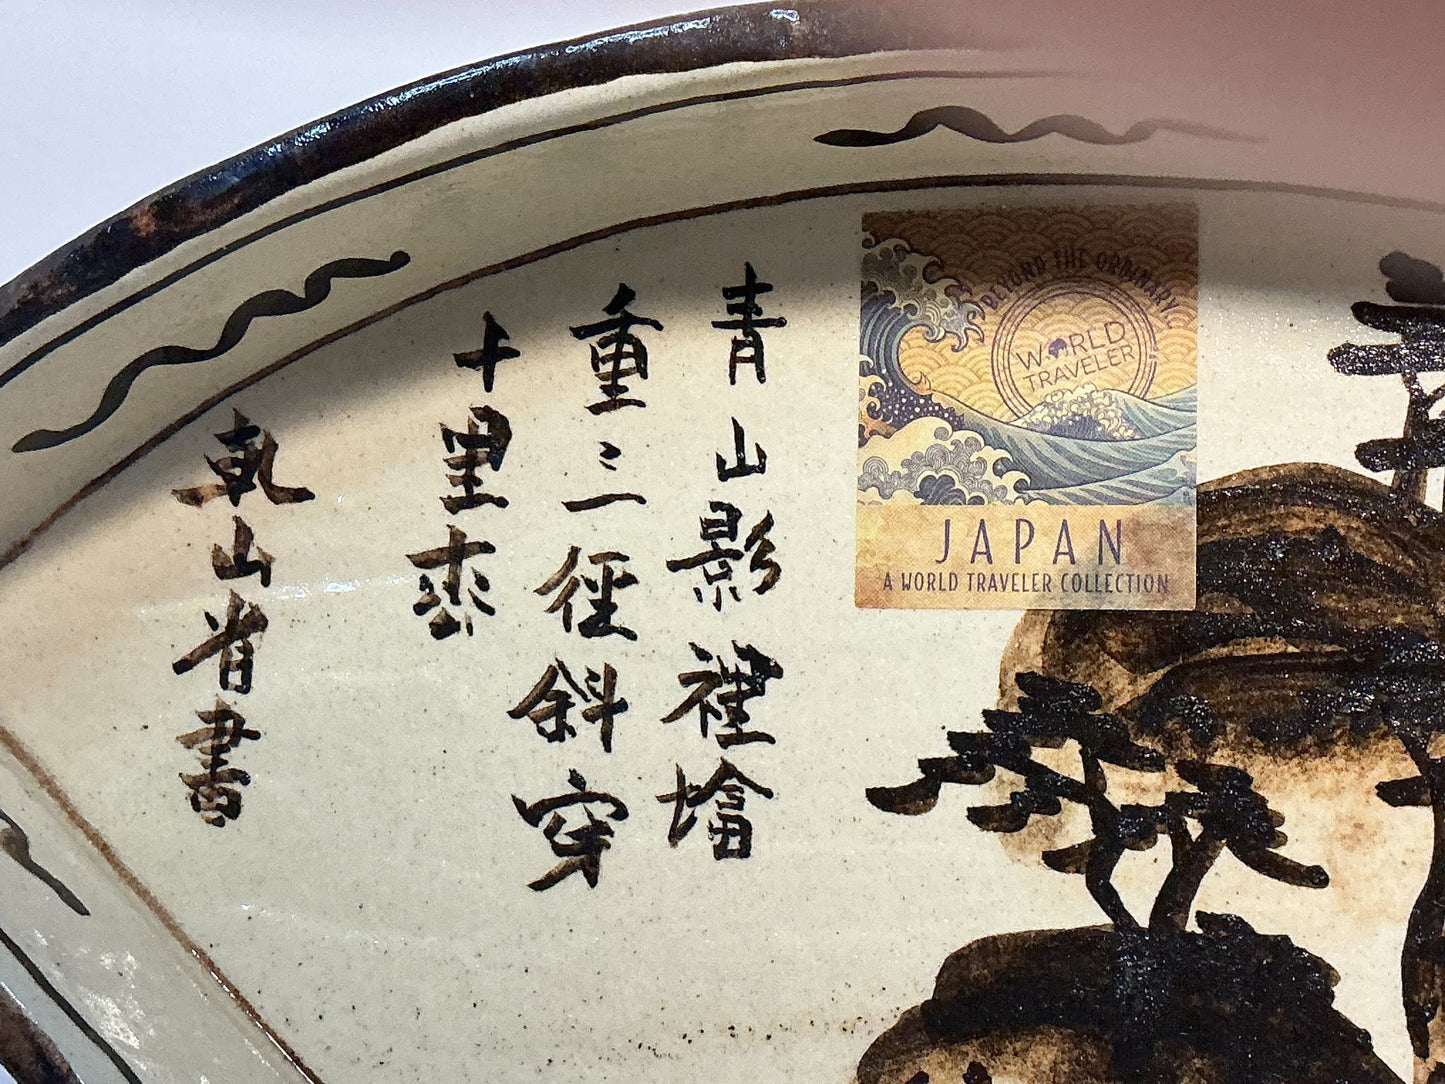 青山影裡墖
重〻一徑斜穿
十里枩
乾山省書
BEYOND THE ORDINARY
WORLD
TRAVELER
JAPAN
A WORLD TRAVELER COLLECTION